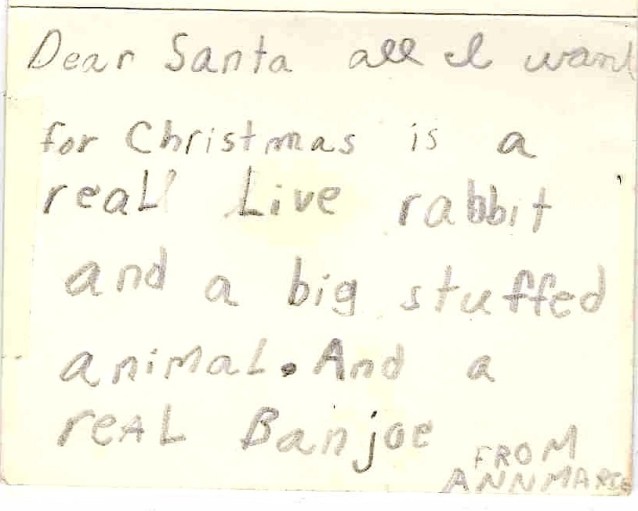 Dear Santa all I want
for Christmas is a
real Live rabbit
and a big stuffed
animal. And a
reAL Banjoe
FROM
ANNMARIE